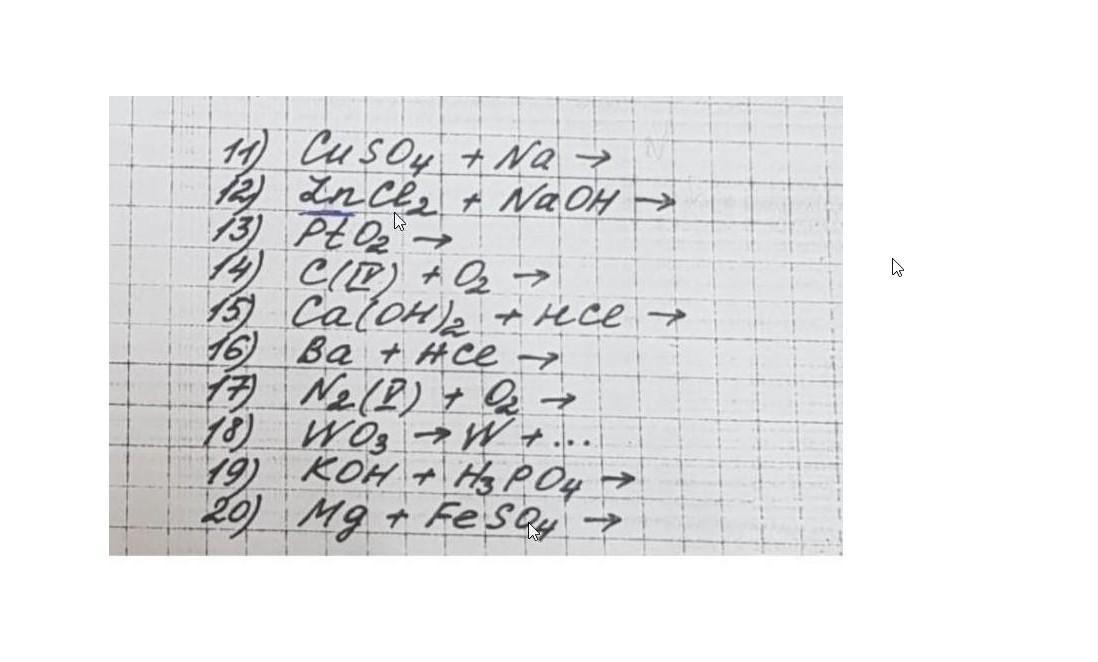 11) CuSO₄ + Na →
12) ZnCl₂ + NaOH →
13) PtO₂ →
14) C(IV) + O₂ →
15) Ca(OH)₂ + HCl →
16) Ba + HCl →
17) N₂(V) + O₂ →
18) WO₃ → W + ...
19) KOH + H₃PO₄ →
20) Mg + FeSO₄ →